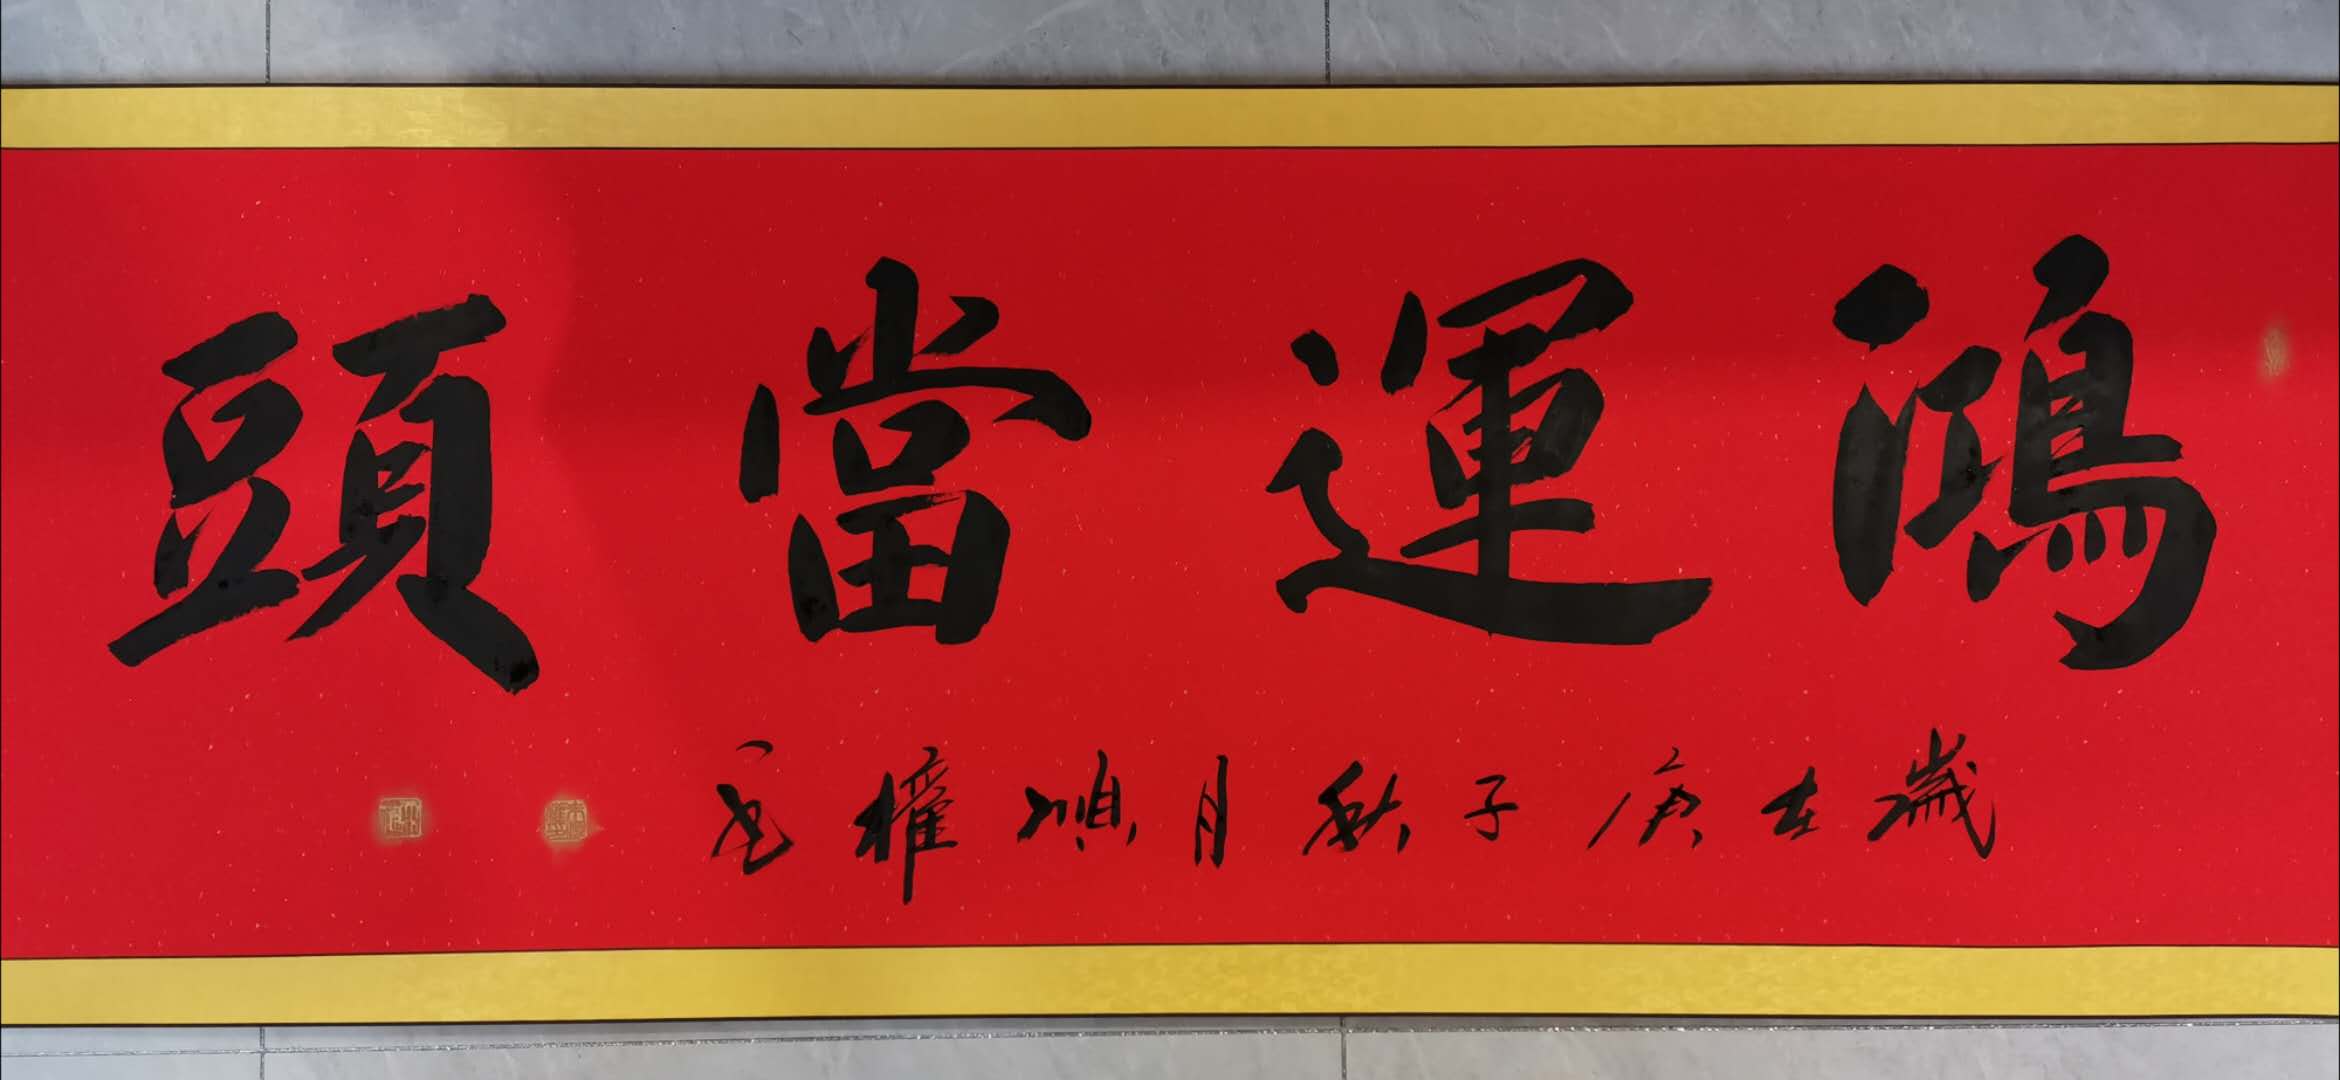 鴻運當頭
歲在庚子秋月順權書